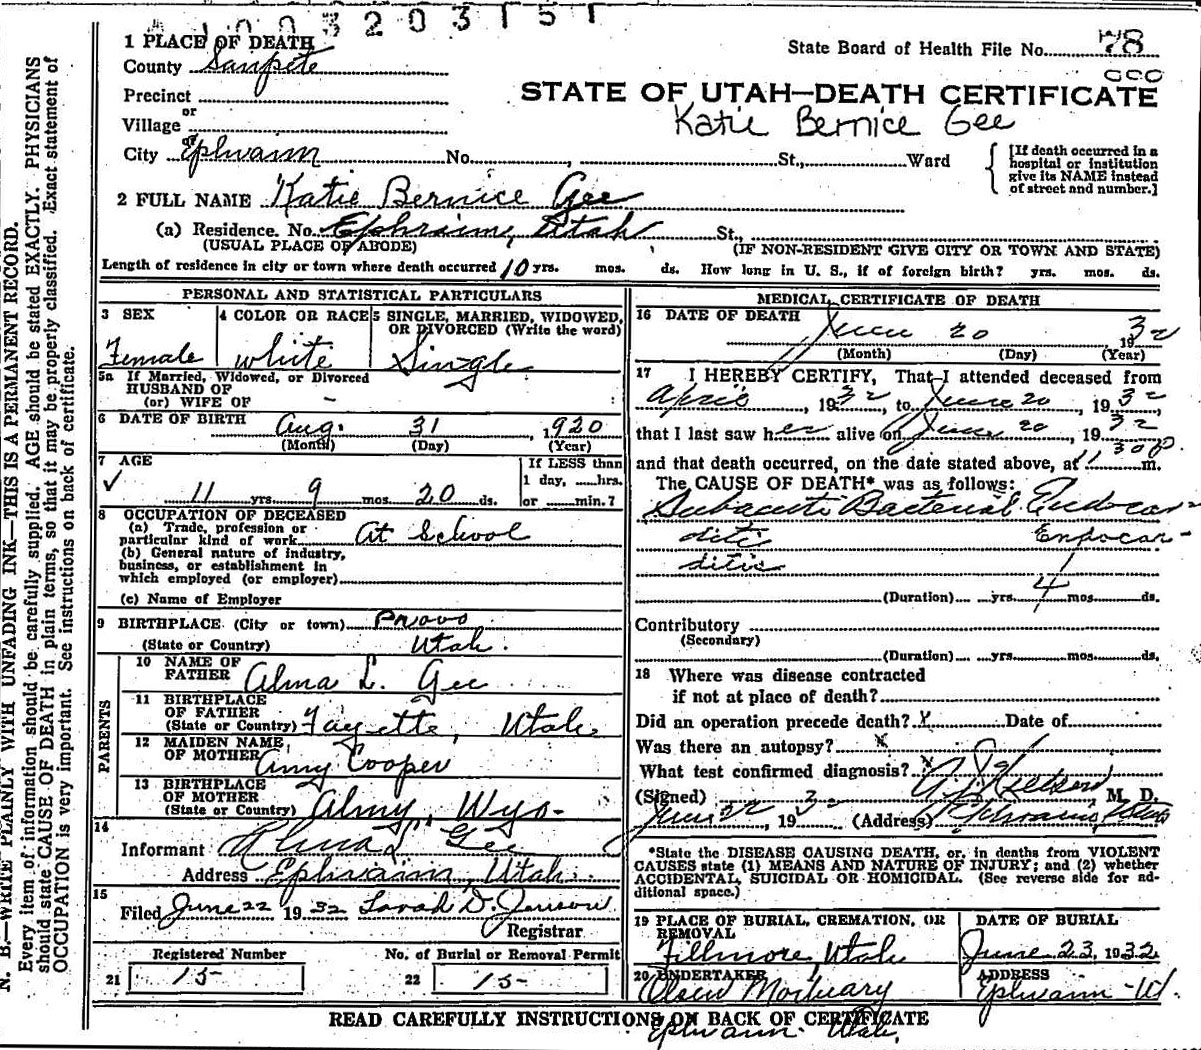 003203151
1 PLACE OF DEATH
State Board of Health File No. 78
County Sanpete
Precinct
or
Village
or
City Ephraim No. , St., Ward
STATE OF UTAH—DEATH CERTIFICATE
Katie Bernice Gee
[If death occurred in a
hospital or institution
give its NAME instead
of street and number.]
2 FULL NAME Katie Bernice Gee
(a) Residence. No. Ephraim, Utah St.,
(USUAL PLACE OF ABODE) (IF NON-RESIDENT GIVE CITY OR TOWN AND STATE)
Length of residence in city or town where death occurred 10 yrs. mos. ds. How long in U. S., if of foreign birth? yrs. mos. ds.
PERSONAL AND STATISTICAL PARTICULARS
3 SEX
Female
4 COLOR OR RACE
white
5 SINGLE, MARRIED, WIDOWED,
OR DIVORCED (Write the word)
Single
5a If Married, Widowed, or Divorced
HUSBAND OF
(or) WIFE OF -
6 DATE OF BIRTH Aug. 31, 1920
(Month) (Day) (Year)
7 AGE
✓ 11 yrs 9 mos. 20 ds.
If LESS than
1 day, hrs.
or min.?
8 OCCUPATION OF DECEASED
(a) Trade, profession or
particular kind of work At School
(b) General nature of industry,
business, or establishment in
which employed (or employer)
(c) Name of Employer
9 BIRTHPLACE (City or town) Provo
(State or Country) Utah.
PARENTS
10 NAME OF
FATHER Alma L. Gee
11 BIRTHPLACE
OF FATHER
(State or Country) Fayette, Utah.
12 MAIDEN NAME
OF MOTHER Amy Cooper
13 BIRTHPLACE
OF MOTHER
(State or Country) Almy, Wyo-
14
Informant Alma L Gee
Address Ephraim, Utah.
15
Filed June 22 1932 D.
Registrar
Registered Number No. of Burial or Removal Permit
21 15- 22 15-
MEDICAL CERTIFICATE OF DEATH
16 DATE OF DEATH June 20 1932
(Month) (Day) (Year)
17 I HEREBY CERTIFY, That I attended deceased from
April, 1932, to June 20, 1932,
that I last saw her alive on June 20, 1932
and that death occurred, on the date stated above, at 11:30 p m.
The CAUSE OF DEATH* was as follows:
Subacute Bacterial Endocar-
ditis Endocar-
ditis
(Duration) yrs. 4 mos. ds.
Contributory
(Secondary)
(Duration) yrs. mos. ds.
18 Where was disease contracted
if not at place of death?
Did an operation precede death? x Date of
Was there an autopsy? x
What test confirmed diagnosis? x
(Signed) , M. D.
June 22, 1932 (Address) Ephraim, Utah
*State the DISEASE CAUSING DEATH, or, in deaths from VIOLENT
CAUSES state (1) MEANS AND NATURE OF INJURY; and (2) whether
ACCIDENTAL, SUICIDAL OR HOMICIDAL. (See reverse side for ad-
ditional space.)
19 PLACE OF BURIAL, CREMATION, OR
REMOVAL
Fillmore, Utah
DATE OF BURIAL
June 23, 1932
20 UNDERTAKER
Olsen Mortuary
Ephraim Utah.
ADDRESS
Ephraim-Ut.
READ CAREFULLY INSTRUCTIONS ON BACK OF CERTIFICATE
N. B.—WRITE PLAINLY WITH UNFADING INK—THIS IS A PERMANENT RECORD.
Every item of information should be carefully supplied. AGE should be stated EXACTLY. PHYSICIANS
should state CAUSE OF DEATH in plain terms, so that it may be properly classified. Exact statement of
OCCUPATION is very important. See instructions on back of certificate.